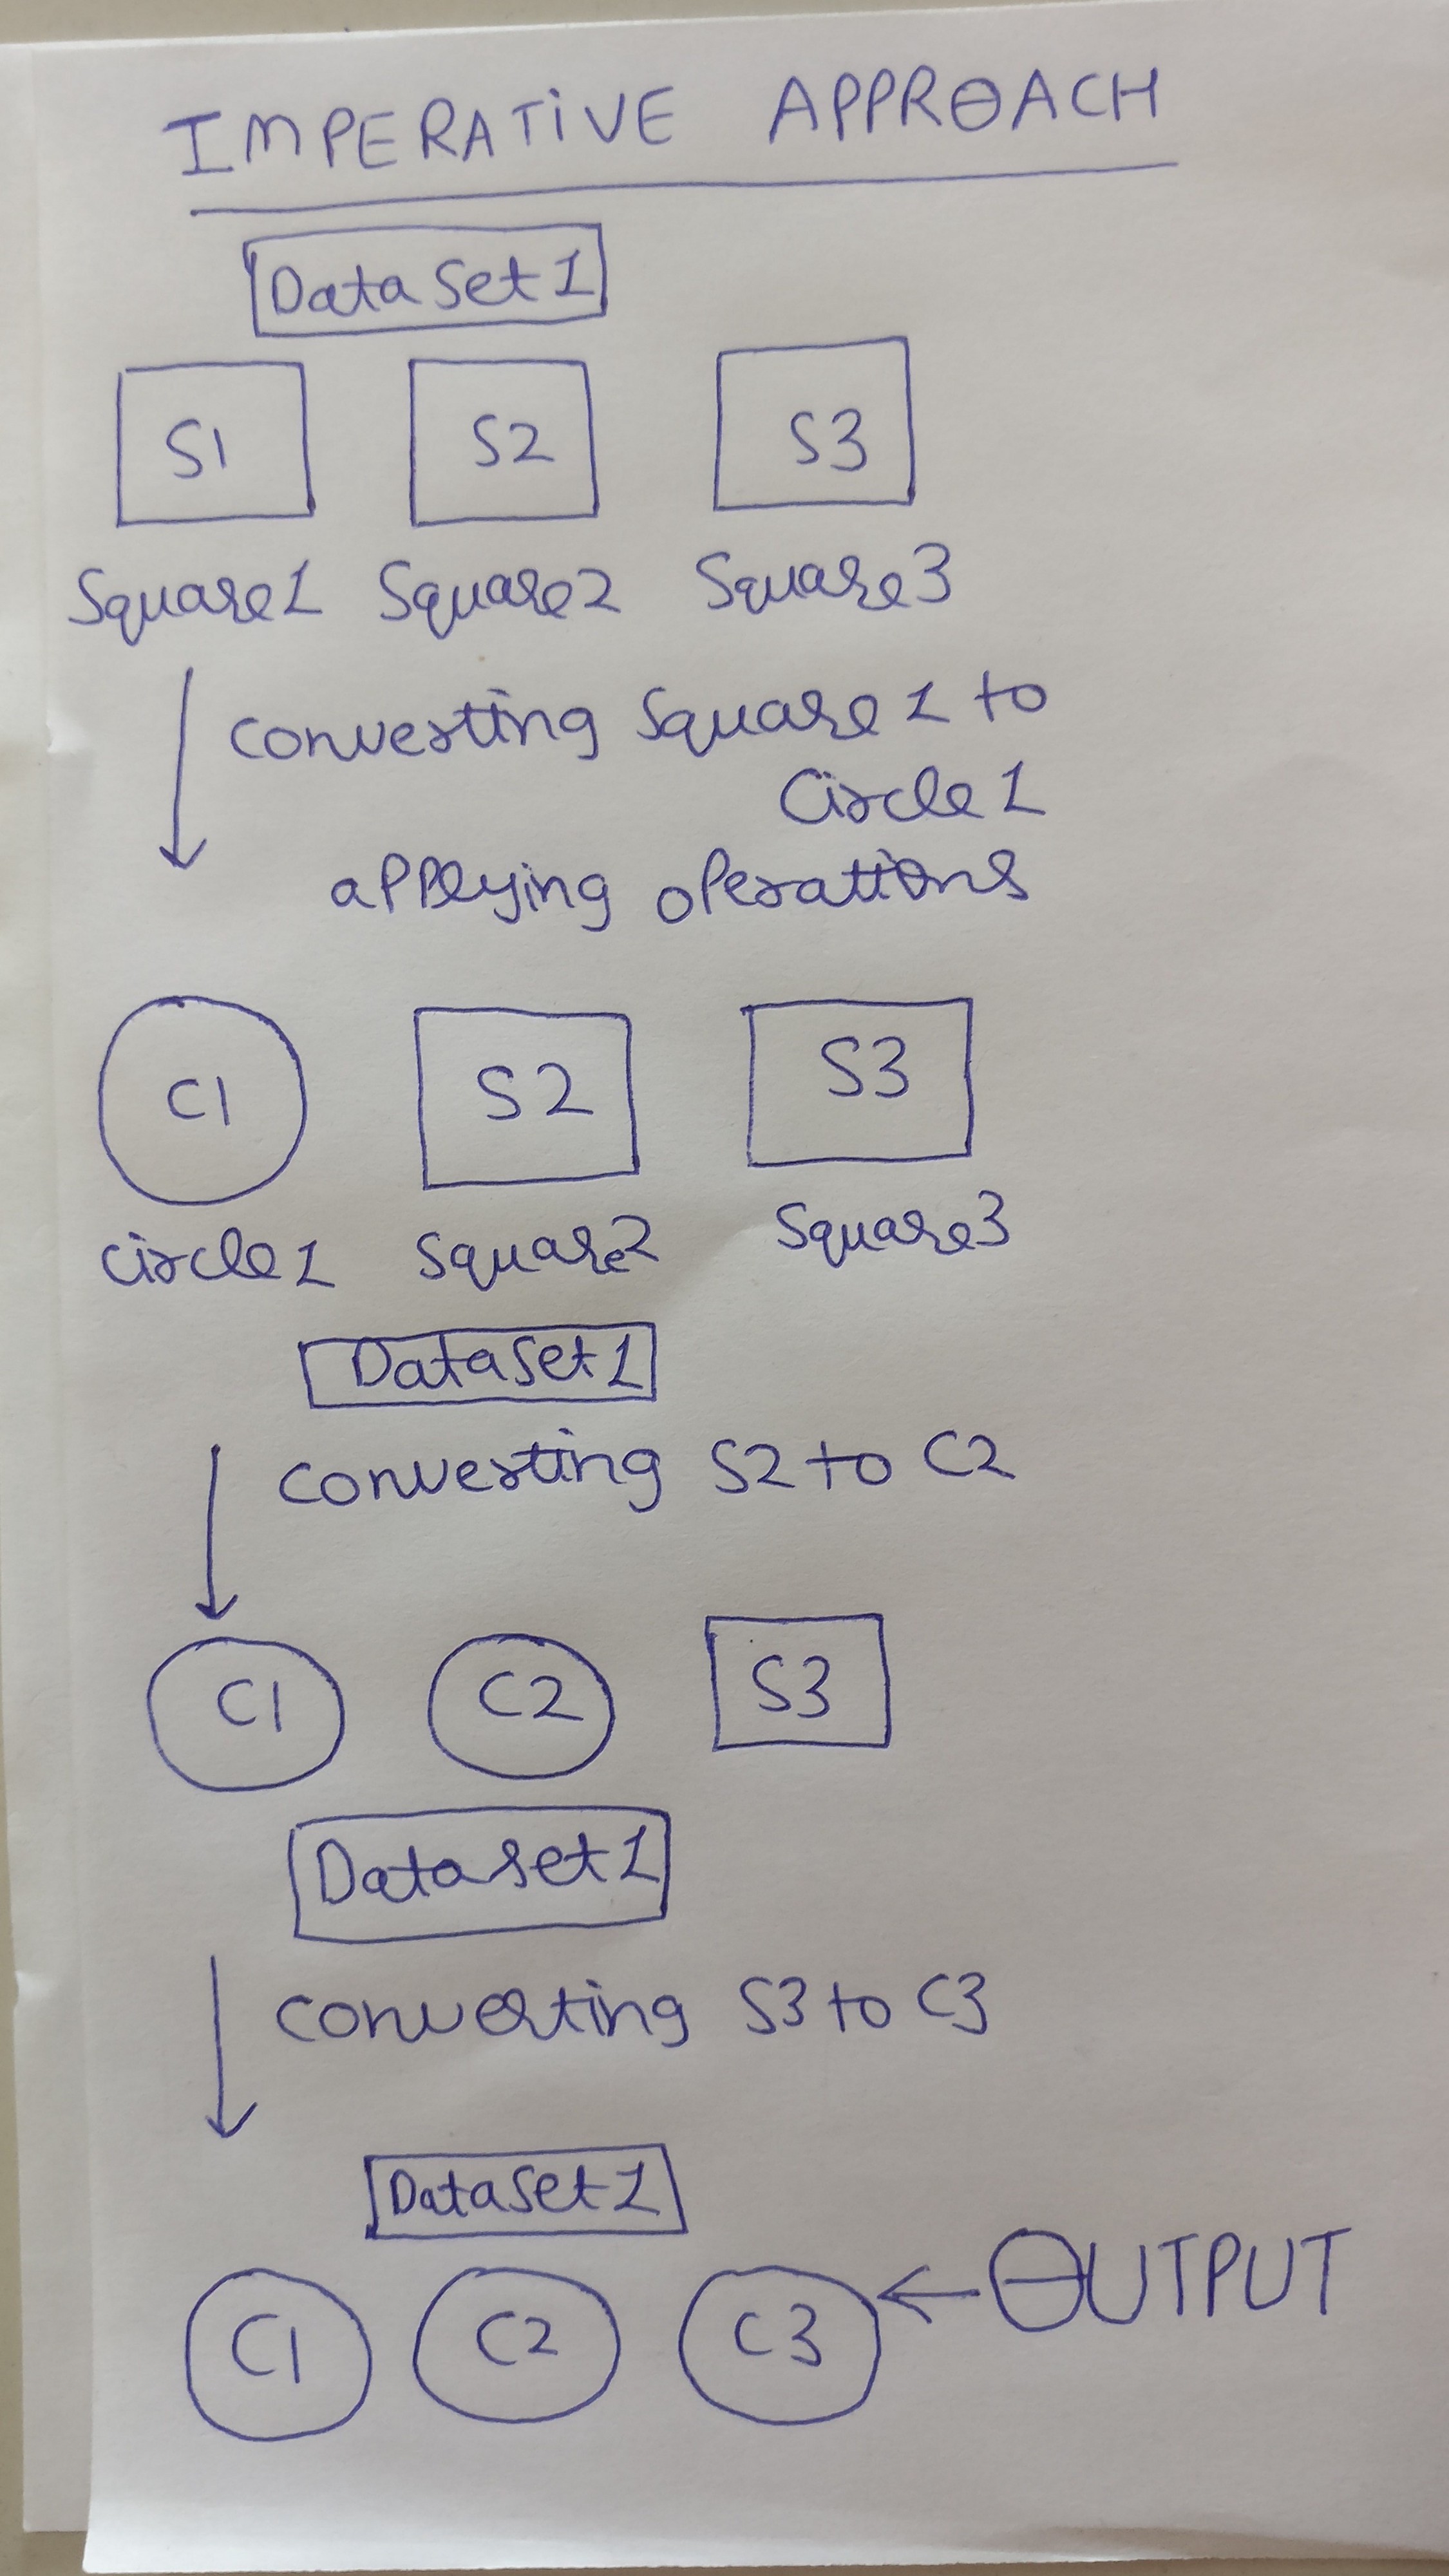 IMPERATIVE APPROACH
Dataset1
S1 S2 S3
Square1 Square2 Square3
converting Square1 to
Circle1
applying operations
C1 S2 S3
circle1 Square2 Square3
Dataset1
converting S2 to C2
C1 C2 S3
Dataset1
converting S3 to C3
Dataset1
C1 C2 C3 ← OUTPUT